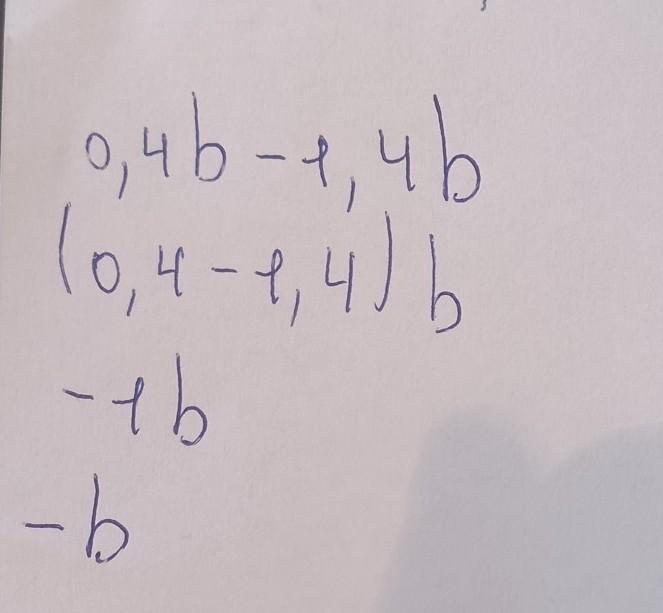 0,4b - 1,4b
(0,4 - 1,4) b
- 1b
- b